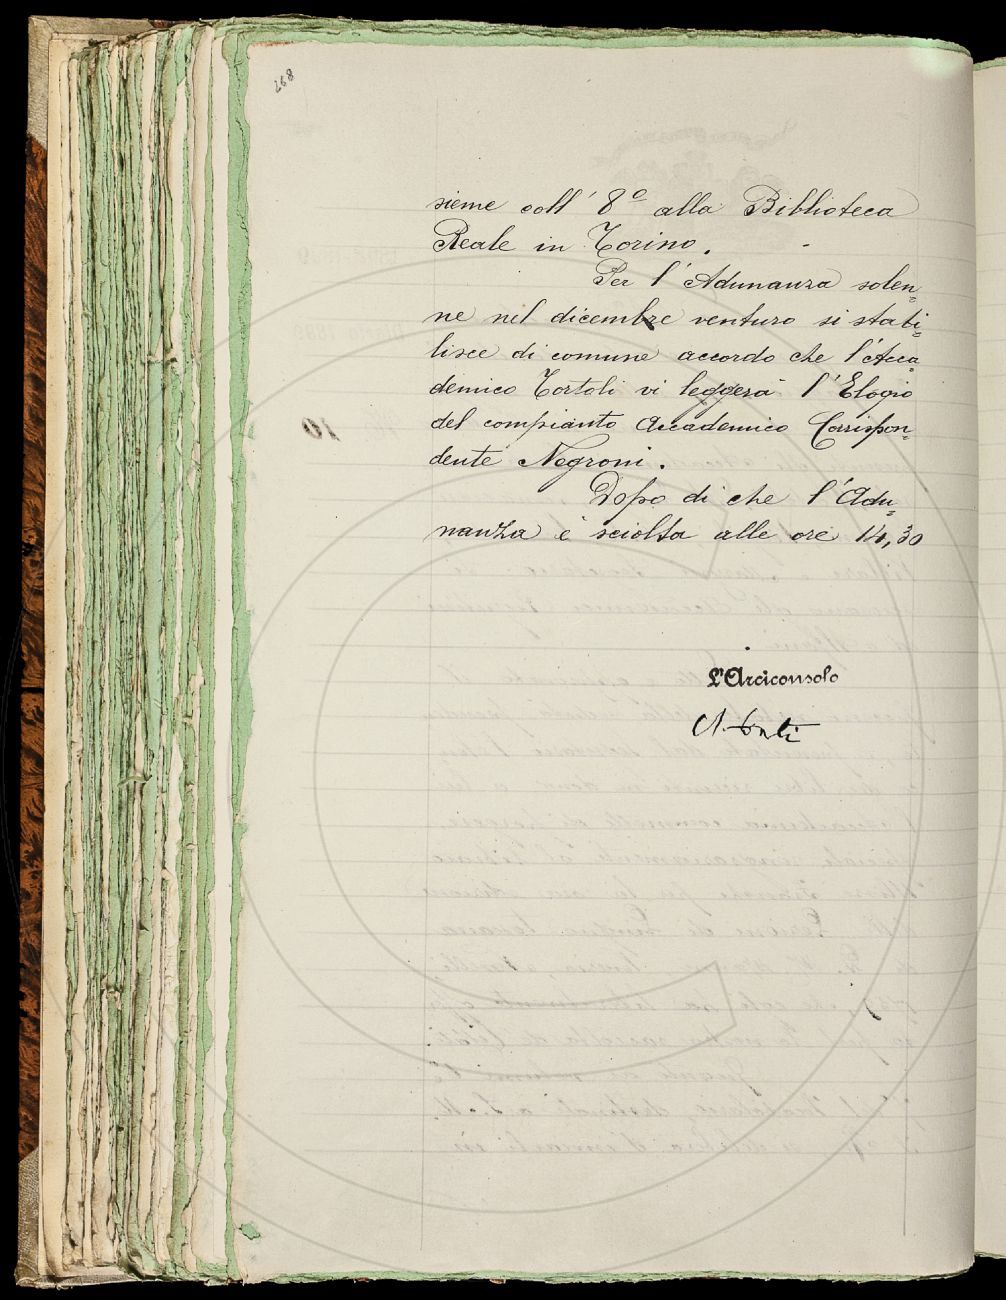 268
sieme coll' 8º alla Biblioteca
Reale in Torino.
Per l'Adunanza solen=
ne nel dicembre venturo si stabi=
lisce di comune accordo che l'Acca=
demico Tortoli vi leggerà l'Elogio
del compianto Accademico Corrispon=
dente Negroni.
Dopo di che l'Adu=
nanza è sciolta alle ore 14,30
L'Arciconsolo
A. Conti